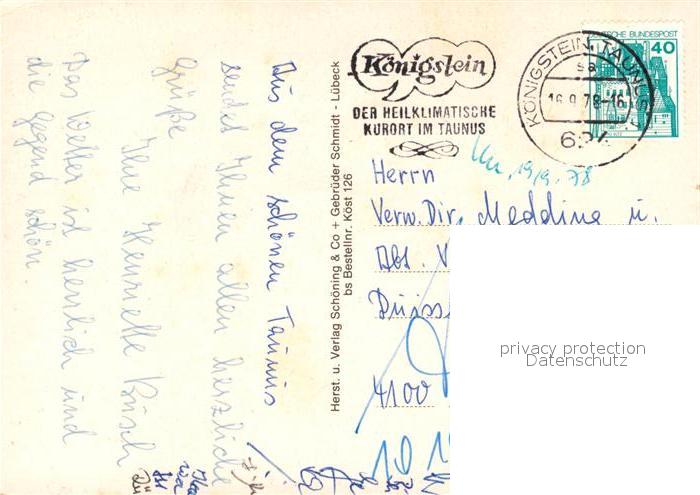 Aus dem schönen Taunus
sendet Ihnen allen herzliche
Grüße
Ihre Henriette Busch
Das Wetter ist herrlich und
die Gegend schön.
Herst. u. Verlag Schöning & Co + Gebrüder Schmidt - Lübeck
bs Bestellnr. Köst 126
Königstein
DER HEILKLIMATISCHE
KURORT IM TAUNUS
KÖNIGSTEIN, TAUNUS
sa
16.9.78-16
DEUTSCHE BUNDESPOST
40
19/9.78
Herrn
Verw. Dir. Medding u.
Abt. V
Duiss
4100
privacy protection
Datenschutz